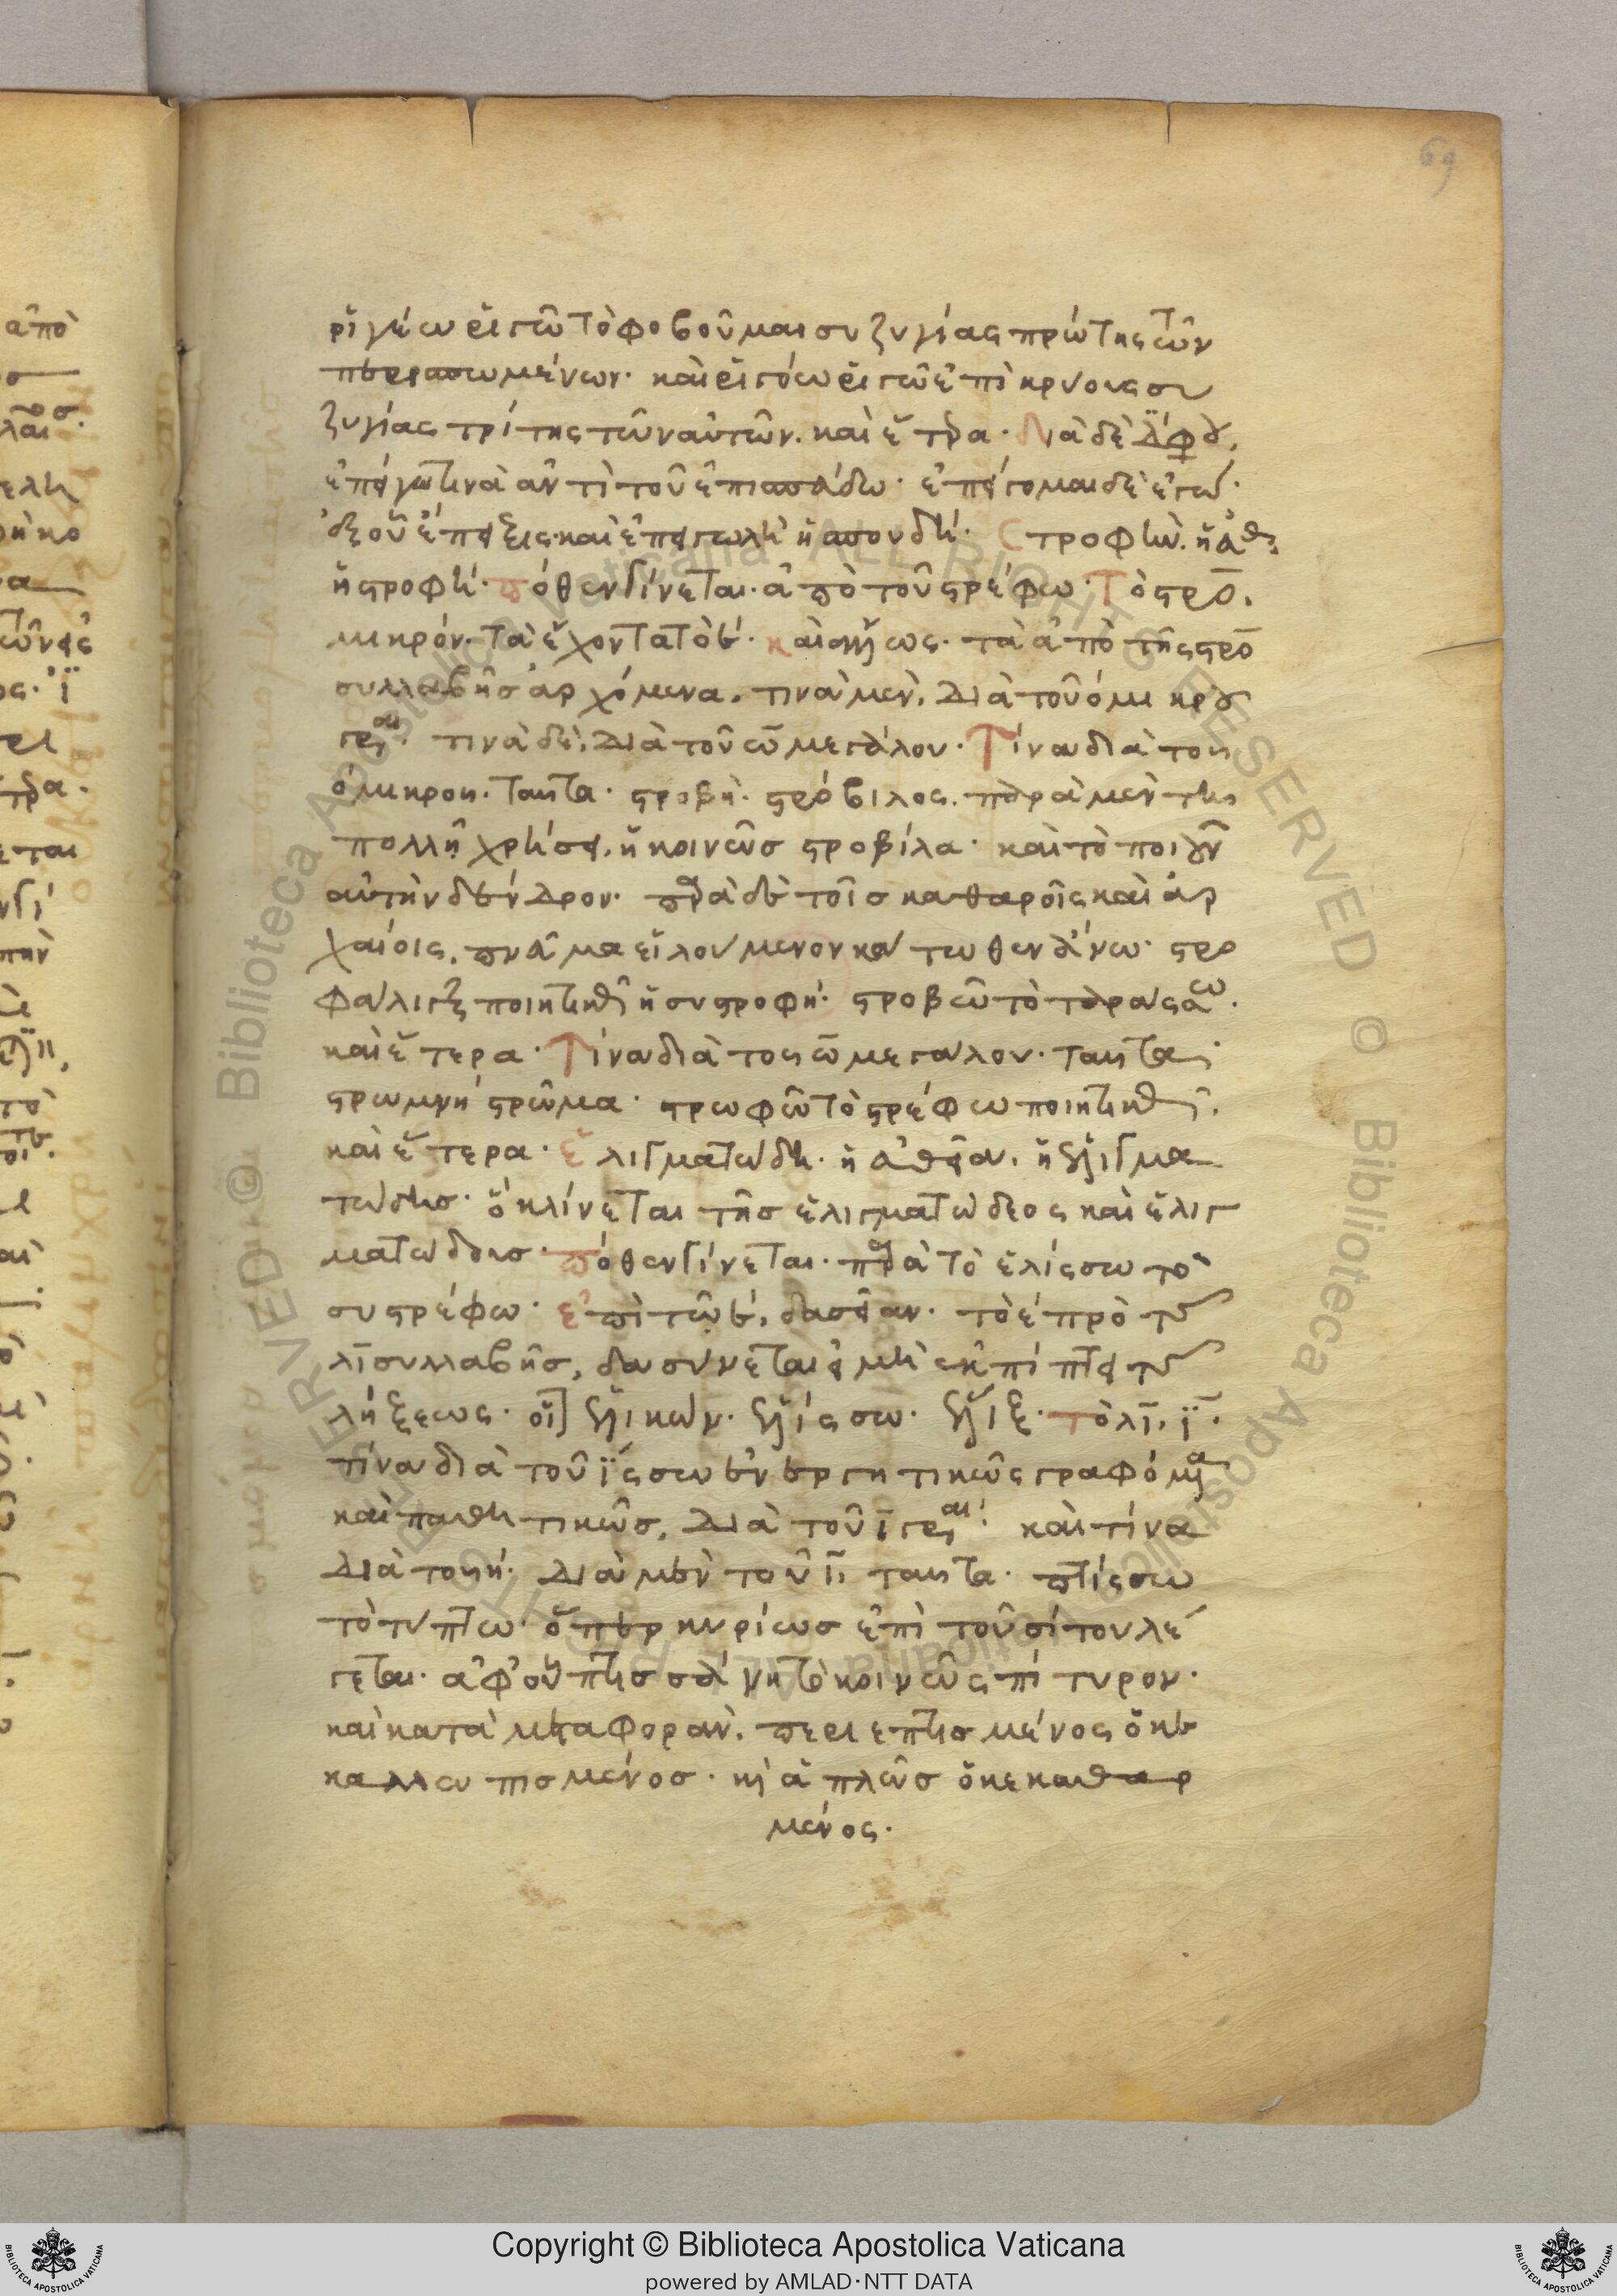 69
ῥιγέω ῥιγῶ τὸ φοβοῦμαι συζυγίας πρώτης τῶν
περισπωμένων· καὶ ῥιγόω ῥιγῶ ἐπὶ κρύους συ
ζυγίας τρίτης τῶν αὐτῶν. καὶ ἕτερα· διὰ δὲ διφθόγγου,
ἐπείγω τινὰ ἀντὶ τοῦ ἐπισπεύδω· ἐπείγομαι δὲ ἐγώ·
ἐξ οὗ ἔπειξις καὶ ἐπειγωλὴ ἡ σπουδή· Στροφὴν. ἡ εὐθεῖα
ἡ στροφή· πόθεν γίνεται· ἀπὸ τοῦ στρέφω· Τὸ στρο,
μικρόν· τὰ ἔχοντα τὸ β· καὶ ὅλως· τὰ ἀπὸ τῆς στρο
συλλαβῆς ἀρχόμενα, τινὰ μὲν, διὰ τοῦ ο μικροῦ
γράφεται· τινὰ δὲ, διὰ τοῦ ω μεγάλου· Τίνα διὰ τοῦ
ο μικροῦ· ταῦτα· στροβὴ· στρόβιλος. παρὰ μὲν τῇ
πολλῇ χρήσει, ἡ κοινῶς στροβίλα· καὶ τὸ ποιοῦν
αὐτὴν δένδρον· παρὰ δὲ τοῖς καθαροῖς καὶ ἀρ
χαίοις, πνεῦμα εἰλούμενον κάτωθεν ἄνω· στρο
φάλιγξ ποιητικὴ ἡ συστροφή· στροβῶ τὸ ταράσσω·
καὶ ἕτερα· Τίνα διὰ τοῦ ω μεγάλου· ταῦτα·
στρωμνή στρῶμα· στρωφῶ τὸ στρέφω ποιητικὴ,
καὶ ἕτερα· ἑλιγματώδη. ἡ εὐθεῖα, ἡ ἑλιγμα
τώδης· ὃ κλίνεται τῆς ἑλιγματώδεος καὶ ἑλιγ
ματώδους· πόθεν γίνεται· παρὰ τὸ ἑλίσσω τὸ
συστρέφω· ἐπὶ τῶ ε, δασεῖαν· τὸ ε πρὸ τῆς
λι συλλαβῆς, δασύνεται εἰ μὴ ἐκπίπτει τῆς
λήξεως· οἷον ἑλικών· ἑλίσσω· ἕλιξ· τὸ λι, ϊ·
τίνα διὰ τοῦ ϊσσω ἐνεργητικῶς γραφόμενα
καὶ παθητικῶς, διὰ τοῦ ϊ γράφεται· καὶ τίνα
διὰ τοῦ η· διὰ μὲν τοῦ ϊ, ταῦτα· πτίσσω
τὸ τύπτω· ὅπερ κυρίως ἐπὶ τοῦ σίτου λέ
γεται· ἀφ' οὗ πτισσάνη τὸ κοινῶς πίτυρον·
καὶ κατὰ μεταφορὰν, περιεπτισμένος ὁ κε
καλλωπισμένος· καὶ ἁπλῶς ὁ κεκαθαρ
μένος·
Copyright © Biblioteca Apostolica Vaticana
powered by AMLAD·NTT DATA